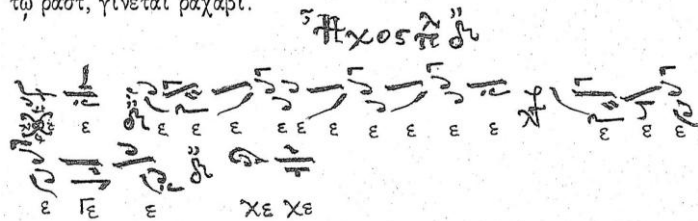 τῷ ῥάστ, γίνεται ῥαχαβί.
Ἦχος
ε ε ε ε εε ε ε ε ε ε ε ε ε
ε Γε ε χε χε